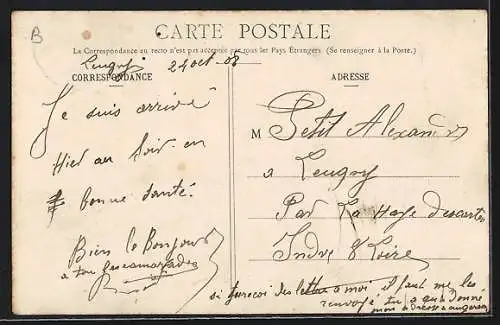 B
CARTE POSTALE
La Correspondance au recto n'est pas acceptée par tous les Pays Étrangers (Se renseigner à la Poste.)
Leugny 24 oct. 08
CORRESPONDANCE
Je suis arrivé
Hier au Soir en
bonne santé.
Bien le Bonjour
a tou les camarades
ADRESSE
M Petit Alexandre
a Leugny
Par La Haye Descartes
Indre & Loire
si tu reçoi des lettre a moi il faut me les
renvoyé tu a qu'a donné
mon adresse a